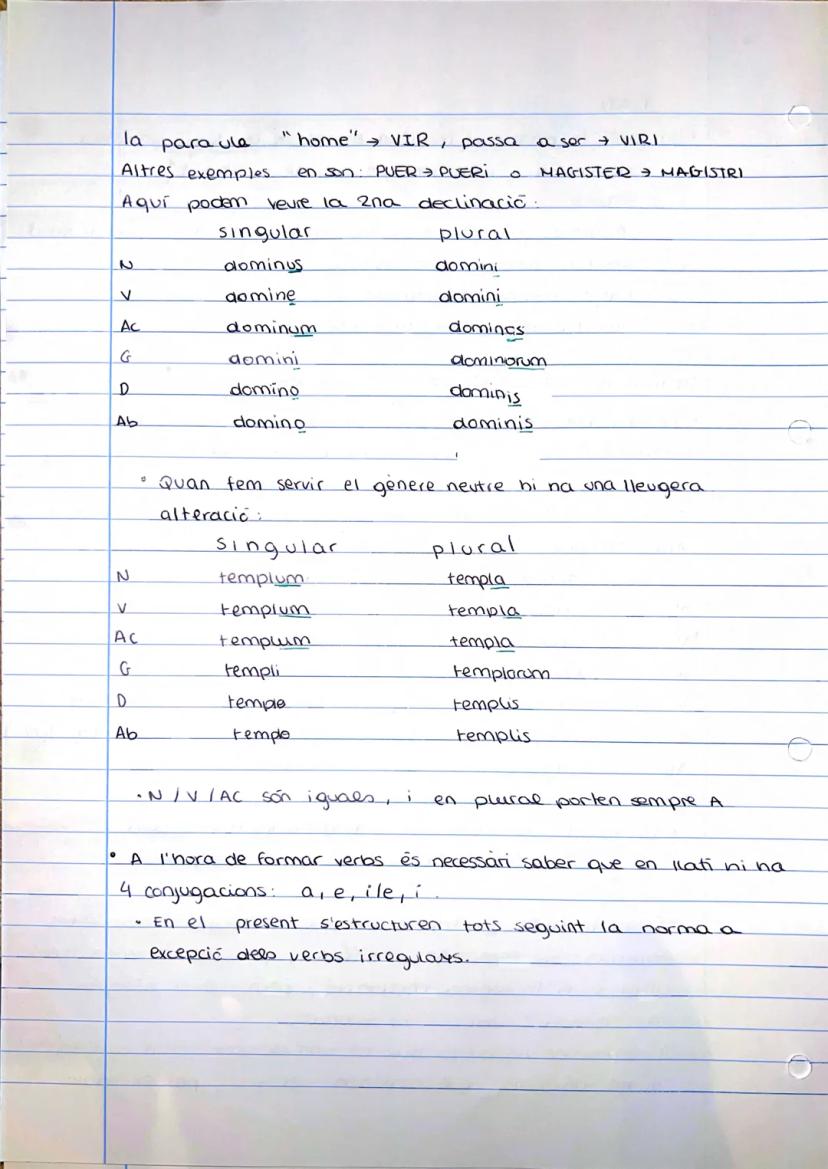 la paraula "home" → VIR, passa a ser → VIRI
Altres exemples en son: PUER → PUERI o MAGISTER → MAGISTRI
Aquí podem veure la 2na declinació:
singular plural
N dominus domini
V domine domini
Ac dominum dominos
G domini dominorum
D domino dominis
Ab domino dominis
• Quan fem servir el gènere neutre hi ha una lleugera
alteració:
singular plural
N templum templa
V templum templa
AC templum templa
G templi templorum
D templo templis
Ab templo templis
• N/V/AC són iguals, i en plural porten sempre A
• A l'hora de formar verbs és necessàri saber que en llatí hi ha
4 conjugacions: a, e, i/e, i.
• En el present s'estructuren tots seguint la norma a
excepció dels verbs irregulars.